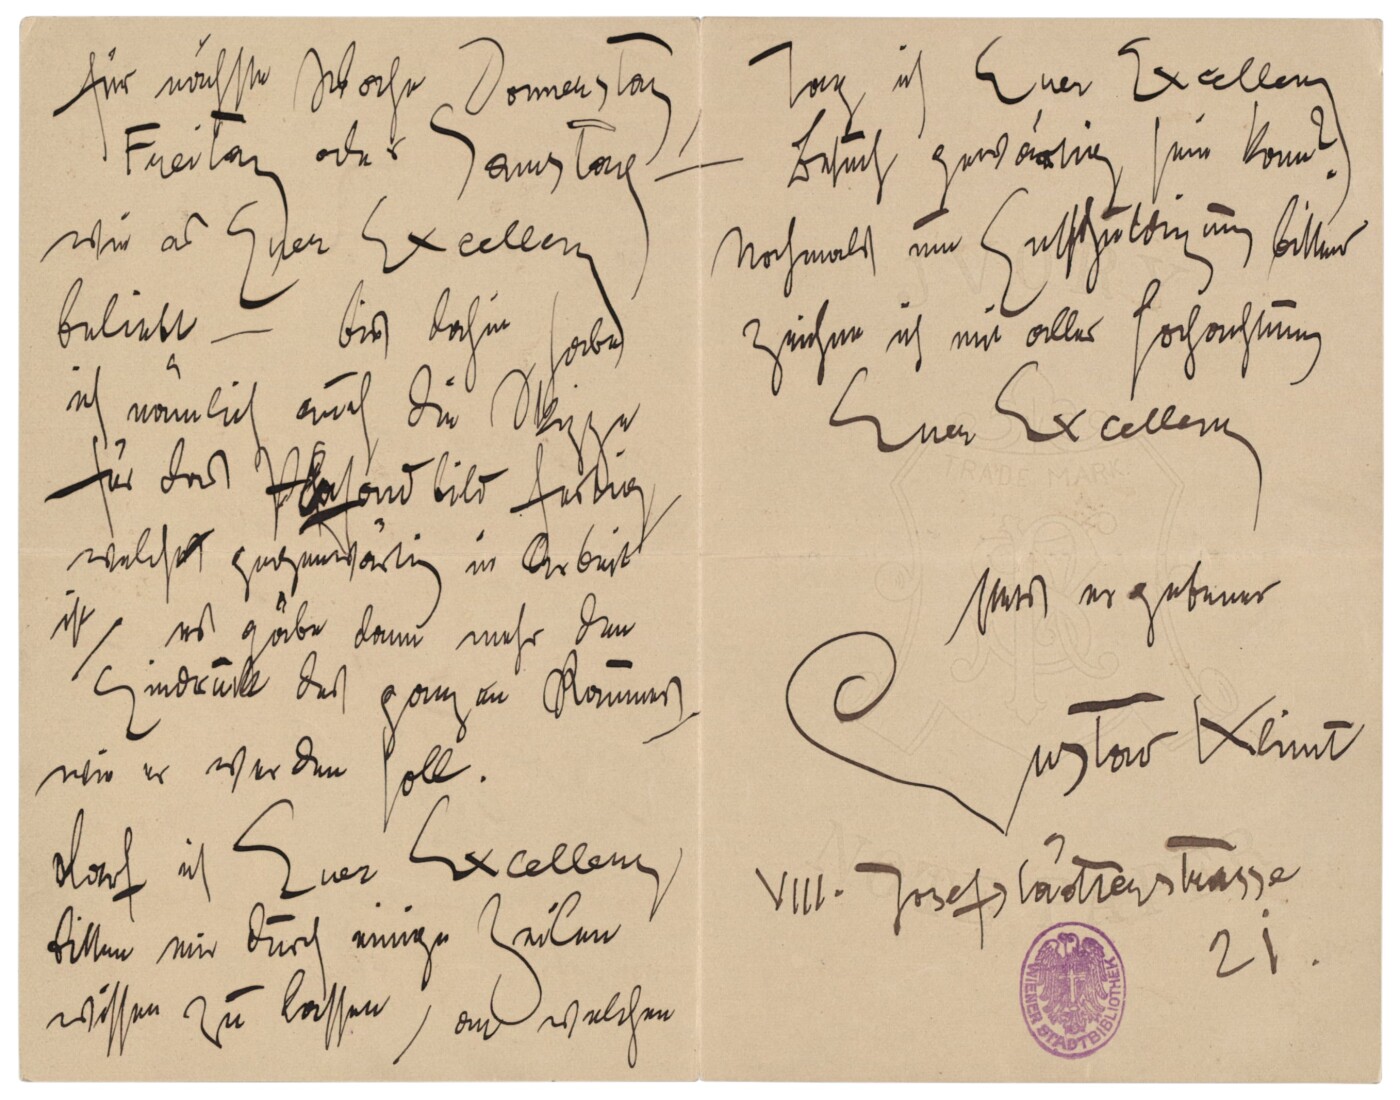 für nächste Woche Donnerstag,
Freitag oder Samstag —
wie es Euer Excellenz
beliebt — bis dahin habe
ich nämlich auch die Skizze
für das Plafondbild fertig,
welches gegenwärtig in Arbeit
ist, es gäbe dann mehr den
Eindruck des ganzen Raumes,
wie er werden soll.
Darf ich Euer Excellenz
bitten mir durch einige Zeilen
wissen zu lassen, an welchen
Tag ich Euer Excellenz
Besuch gewärtig sein kann?
Nochmals um Entschuldigung bittend
zeichne ich mit aller Hochachtung
Euer Excellenz
stets ergebener
Gustav Klimt
VIII. Josefstädterstrasse
21.
WIENER STADTBIBLIOTHEK
TRADE MARK